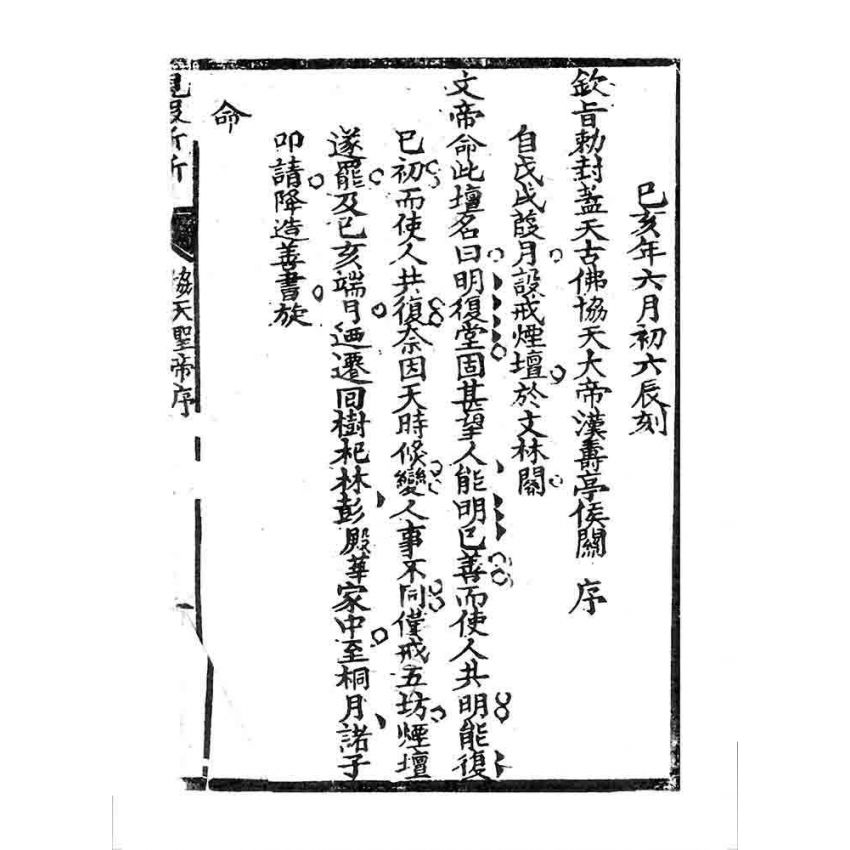 己亥年六月初六辰刻
欽旨勅封蓋天古佛協天大帝漢壽亭侯關　序
自戊戌葭月設戒煙壇於文林閣
文帝命此壇名曰明復堂固甚望人能明己善而使人共明能復
已初而使人共復奈因天時候變人事不同僅戒五坊煙壇
遂罷及己亥端月迺遷回樹杞林彭殿華家中至桐月諸子
叩請降造善書旋
命
協天聖帝序